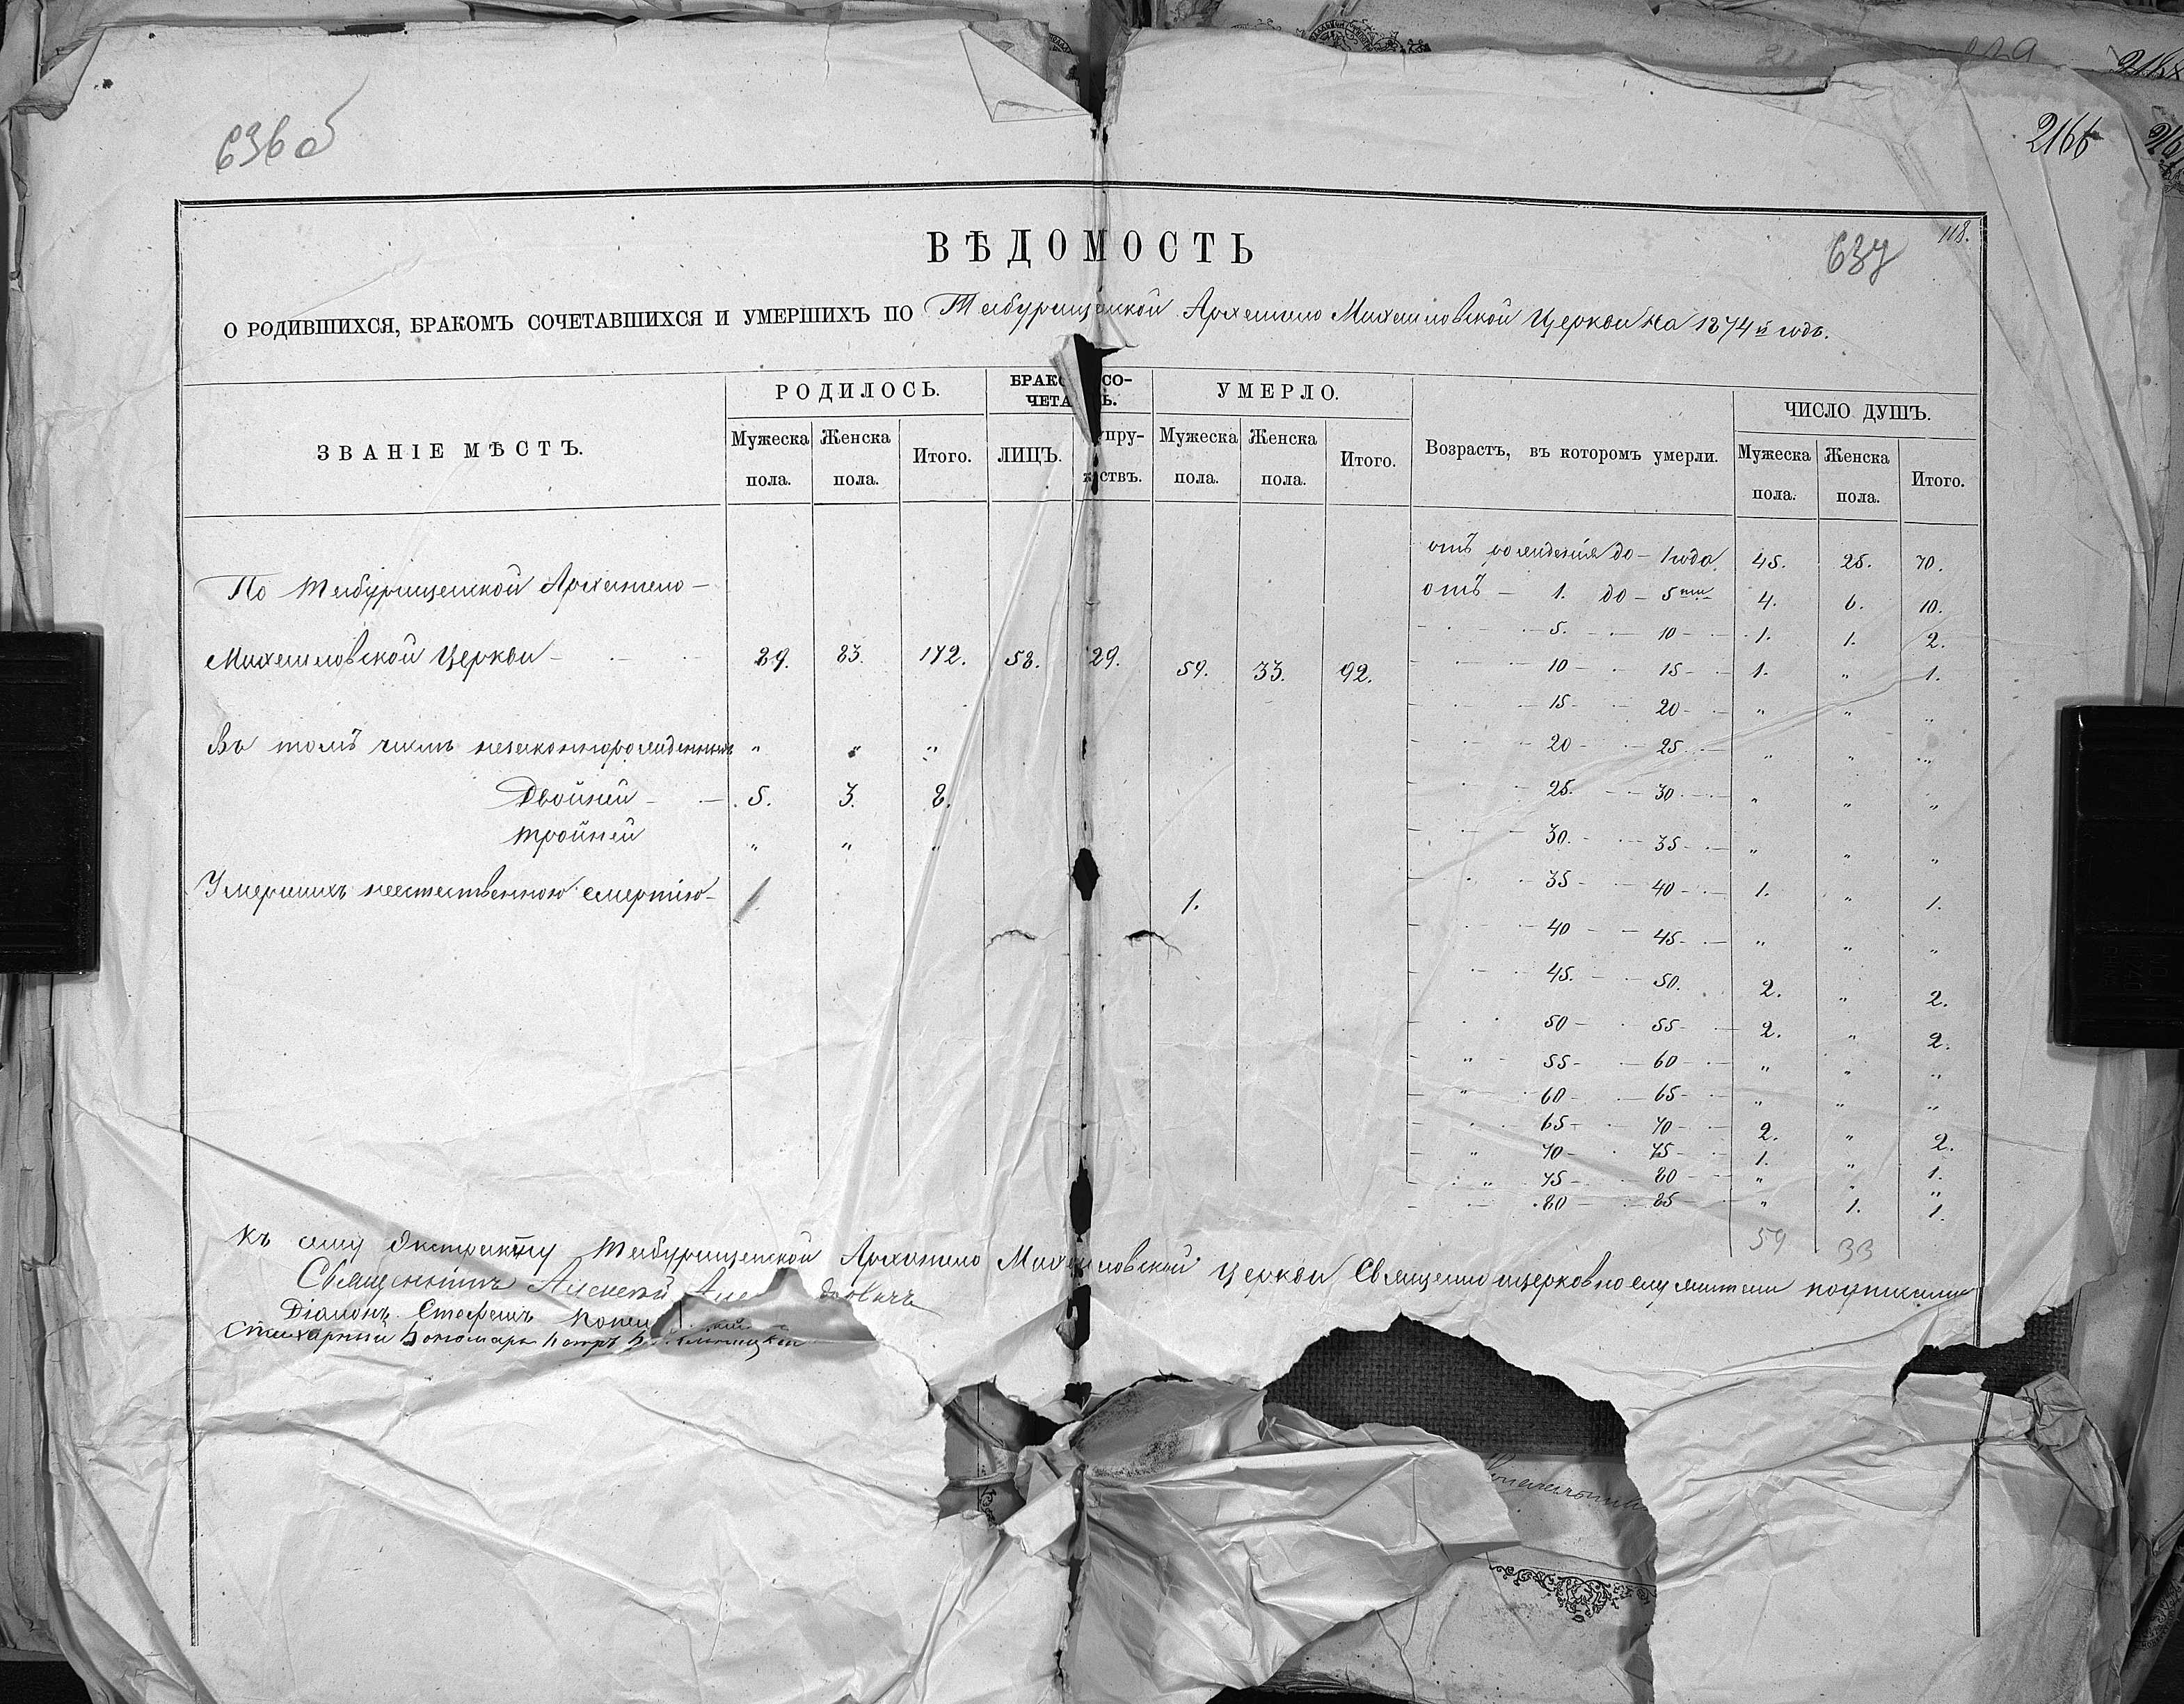 636 об
2166
118.
637
ВѢДОМОСТЬ
О РОДИВШИХСЯ, БРАКОМЪ СОЧЕТАВШИХСЯ И УМЕРШИХЪ ПО Табурищанской Архангело Михаиловской Церкви на 1874й годъ.
ЗВАНІЕ МѢСТЪ. РОДИЛОСЬ. УМЕРЛО. Возрастъ, въ которомъ умерли. ЧИСЛО ДУШЪ.
Мужеска пола. Женска пола. Итого. ЛИЦЪ. Мужеска пола. Женска пола. Итого. Мужеска пола. Женска пола. Итого.
отъ рожденія до – 1 года 45. 25. 70.
По Табурищанской Архангело –
отъ – 1. до – 5ти 4. 6. 10.
5. – 10 – 1. 1. 2.
Михаиловской Церкви – 89. 83. 172. 58. 29. 59. 33. 92.
10 – 15 – 1. „ 1.
15 – 20 – „ „ „
Въ томъ числѣ незаконнорожденныхъ „ „ „
20 – 25 – „ „ „
Двойней – 5. 3. 8.
25. – 30 – „ „ „
Тройней „ „ „
30. – 35 – „ „ „
Умершихъ неестественною смертію – 1. 1.
35 – 40 – 1. „ 1.
40 – 45 – „ „ „
45. – 50. 2. „ 2.
50 – 55 – 2. „ 2.
55 – 60 – „ „ „
60 – 65 – „ „ „
65 – 70 – 2. „ 2.
70 – 75 – 1. „ 1.
75 – 80 – „ „ „
80 – 85 „ 1. 1.
59 33
Къ сему Экстракту Табурищанской Архангело Михаиловской Церкви Священно церковно служители подписали
Священникъ Алексей
Діаконъ Стефанъ
Стихарный Пономарь Петръ